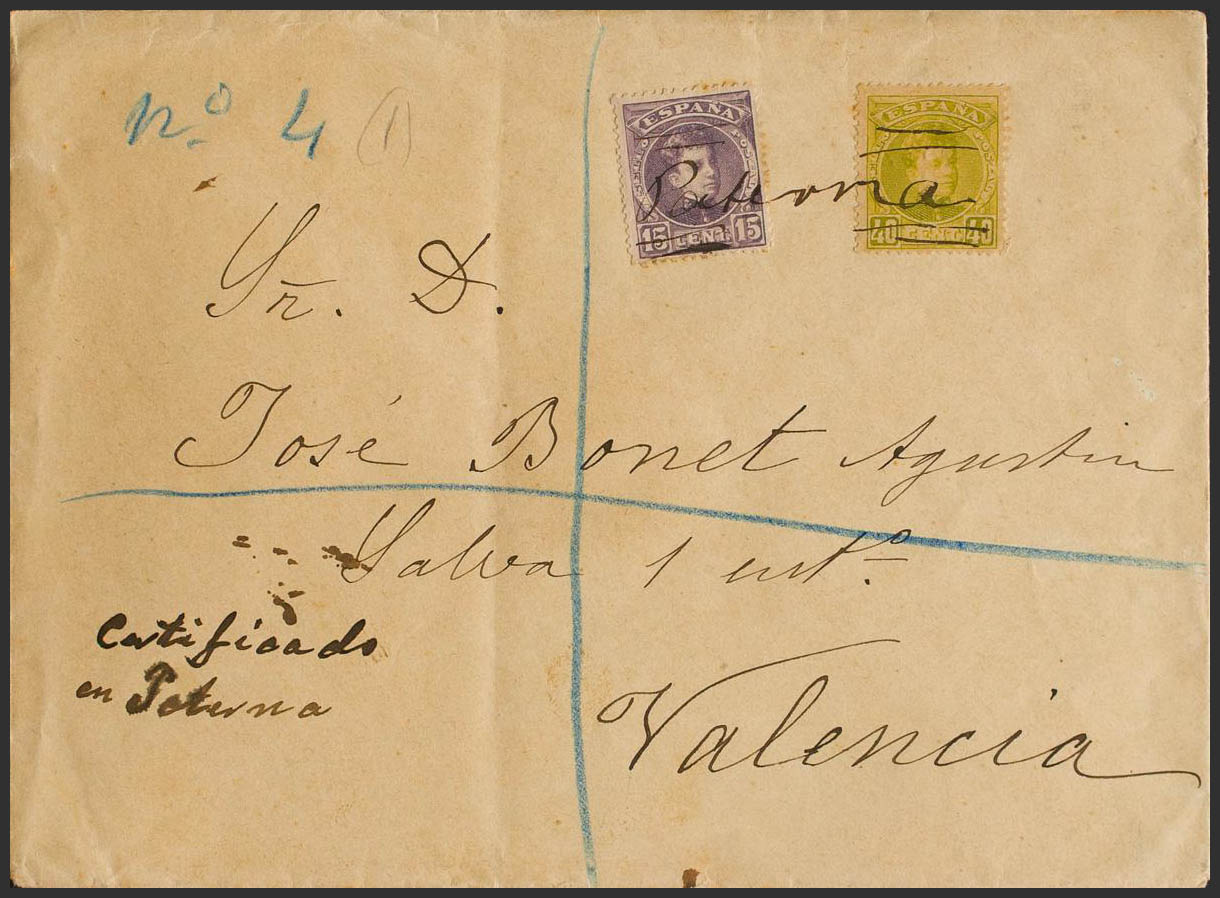 nº 4 (1)
ESPAÑA
15 CENT 15
ESPAÑA
40 CENT 40
Paterna
Sr. D.
José Bonet Agustin
Salva 1 entº
Certificado
en Paterna
Valencia